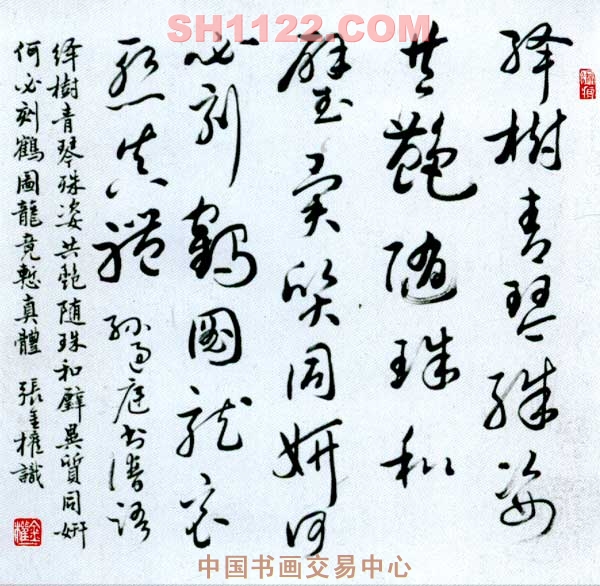 SH1122.COM
绛樹青琴殊姿
共艷随珠和
璧異質同妍何
必刻鶴图龍竟
慙真體 孫过庭书谱语
绛樹青琴殊姿共艷随珠和璧異質同妍
何必刻鶴圖龍竟慙真體 張金權識
中国书画交易中心